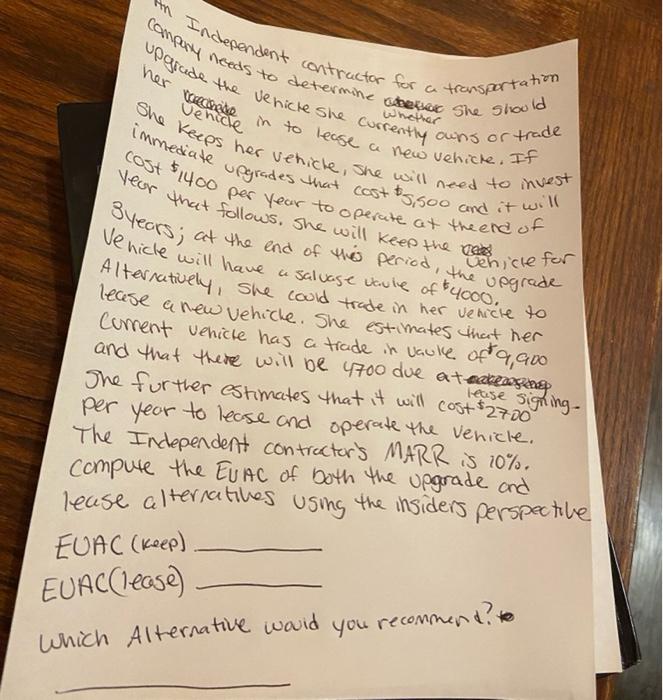 An Independent contractor for a transportation
company needs to determine whether she should
upgrade the vehicle she currently owns or trade
her vehicle in to lease a new vehicle. If
she keeps her vehicle, she will need to invest
immediate upgrades that cost $5,500 and it will
cost $1400 per year to operate at the end of
year that follows. She will keep the vehicle for
3 years; at the end of this period, the upgrade
vehicle will have a salvage vaule of $4000.
Alternatively, she could trade in her vehicle to
lease a new vehicle. She estimates that her
current vehicle has a trade in vaulve of $9,900
and that there will be 4700 due at lease signing.
She further estimates that it will cost $2700
per year to lease and operate the vehicle.
The Independent contractor's MARR is 10%.
compute the EUAC of both the upgrade and
lease alternatives using the insiders perspective
EUAC (keep)
EUAC (lease)
which Alternative would you recommend?